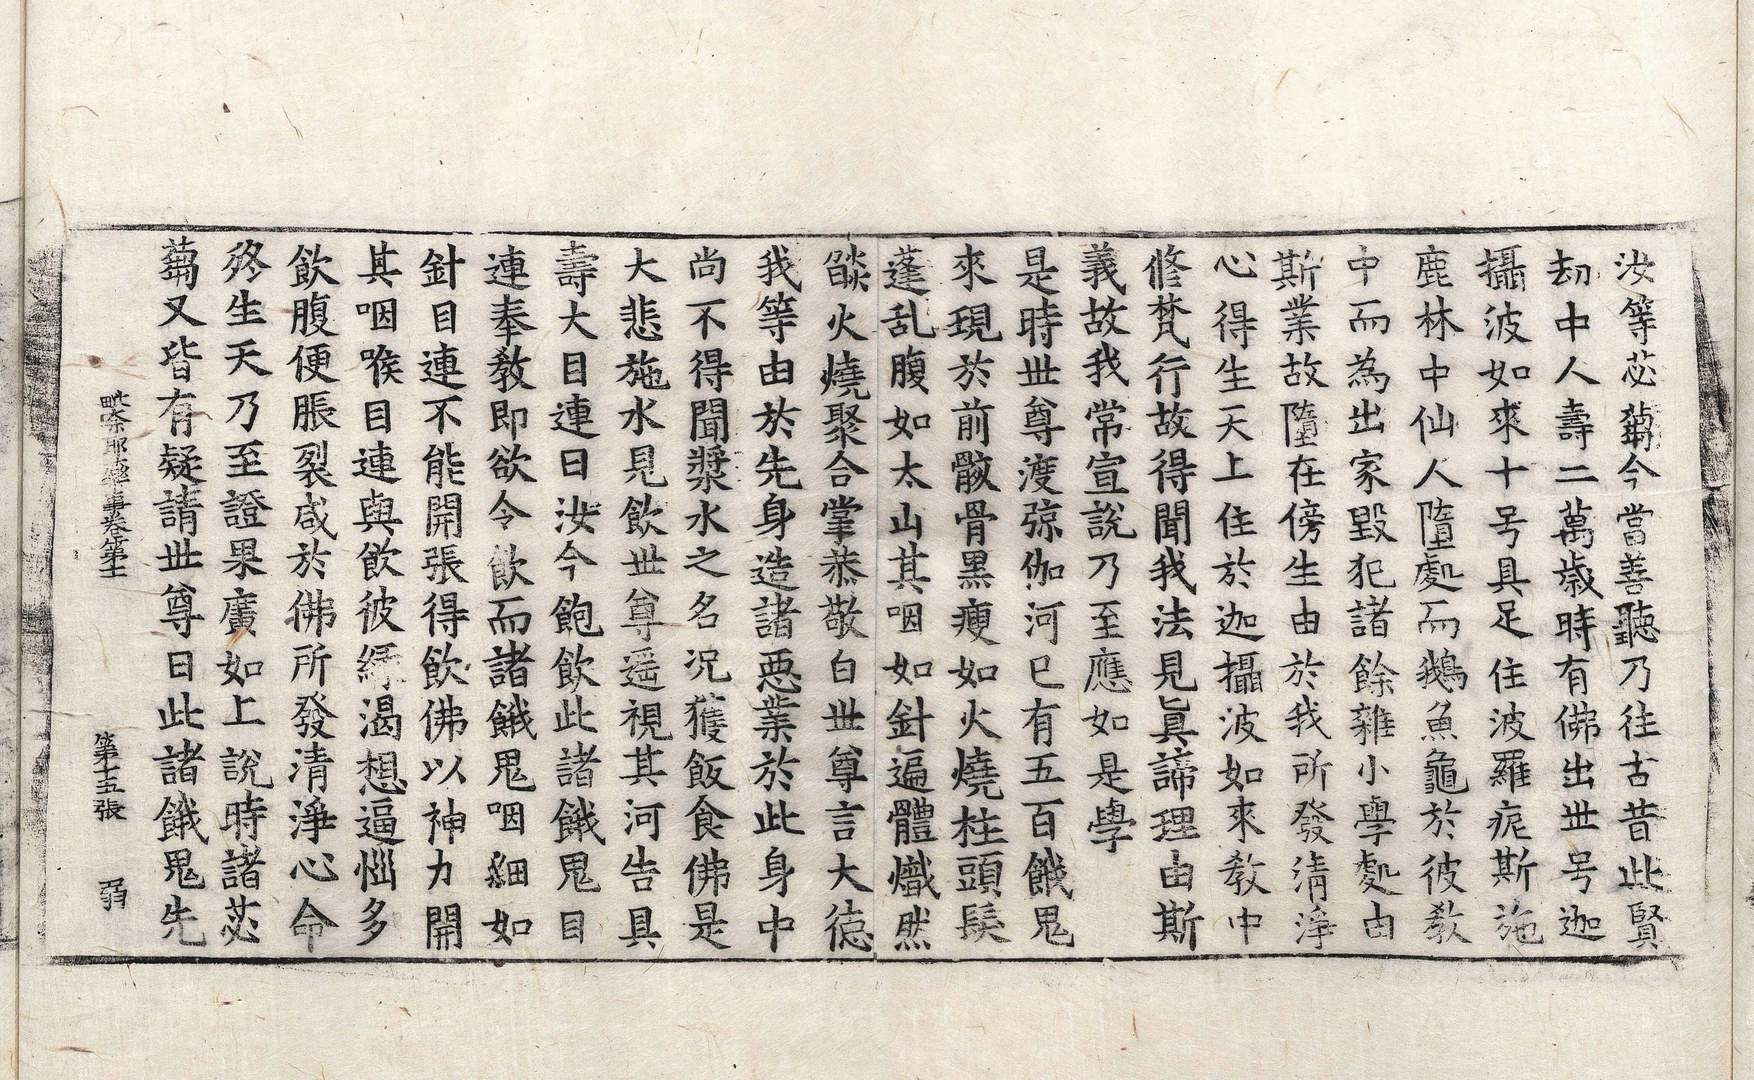 汝等苾蒭今當善聽乃往古昔此賢
劫中人壽二萬歲時有佛出世号迦
攝波如來十号具足住波羅痆斯施
鹿林中仙人墮處而鵝魚龜於彼教
中而為出家毀犯諸餘雜小學處由
斯業故墮在傍生由於我所發清淨
心得生天上住於迦攝波如來教中
修梵行故得聞我法見眞諦理由斯
義故我常宣說乃至應如是學
是時世尊渡弶伽河已有五百餓鬼
來現於前骸骨黑瘦如火燒柱頭髮
蓬乱腹如太山其咽如針遍體熾然
燄火燒聚合掌恭敬白世尊言大德
我等由於先身造諸惡業於此身中
尚不得聞漿水之名况獲飯食佛是
大悲施水見飲世尊遥視其河告具
壽大目連曰汝今飽飲此諸餓鬼目
連奉教即欲令飲而諸餓鬼咽細如
針目連不能開張得飲佛以神力開
其咽喉目連與飲彼緣渴想逼惱多
飲腹便脹裂咸於佛所發清淨心命
終生天乃至證果廣如上說時諸苾
蒭又皆有疑請世尊曰此諸餓鬼先
毗奈耶藥事卷第十一 第十五張 弱